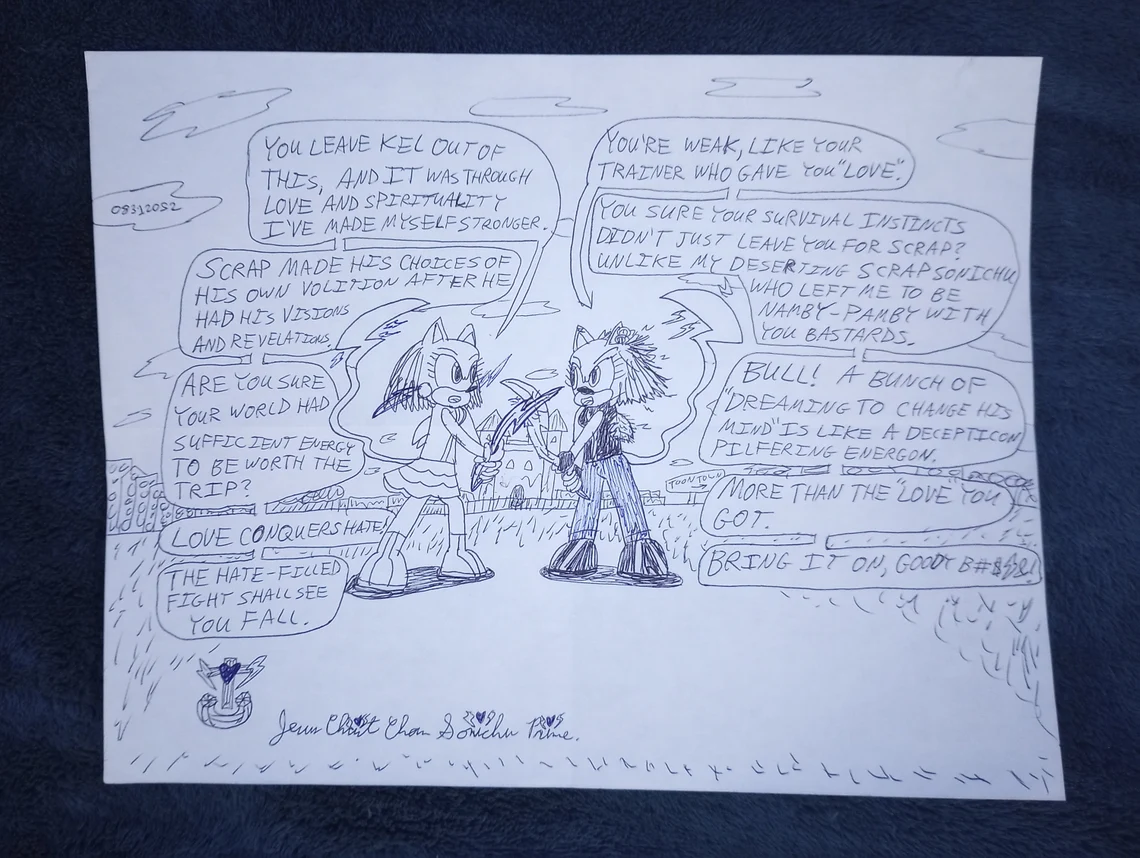 YOU LEAVE KEL OUT OF
THIS, AND IT WAS THROUGH
LOVE AND SPIRITUALITY
I'VE MADE MYSELF STRONGER.
SCRAP MADE HIS CHOICES OF
HIS OWN VOLITION AFTER HE
HAD HIS VISIONS
AND REVELATIONS.
ARE YOU SURE
YOUR WORLD HAD
SUFFICIENT ENERGY
TO BE WORTH THE
TRIP?
LOVE CONQUERS HATE!
THE HATE-FILLED
FIGHT SHALL SEE
YOU FALL.
YOU'RE WEAK, LIKE YOUR
TRAINER WHO GAVE YOU "LOVE".
YOU SURE YOUR SURVIVAL INSTINCTS
DIDN'T JUST LEAVE YOU FOR SCRAP?
UNLIKE MY DESERTING SCRAP SONICHU
WHO LEFT ME TO BE
NAMBY-PAMBY WITH
YOU BASTARDS.
BULL! A BUNCH OF
"DREAMING TO CHANGE HIS
MIND" IS LIKE A DECEPTICON
PILFERING ENERGON.
MORE THAN THE "LOVE" YOU
GOT.
BRING IT ON, GOODY B#$§&!
08312052
TOON TOWN
Jesus Christ Chan Sonichu Prime.